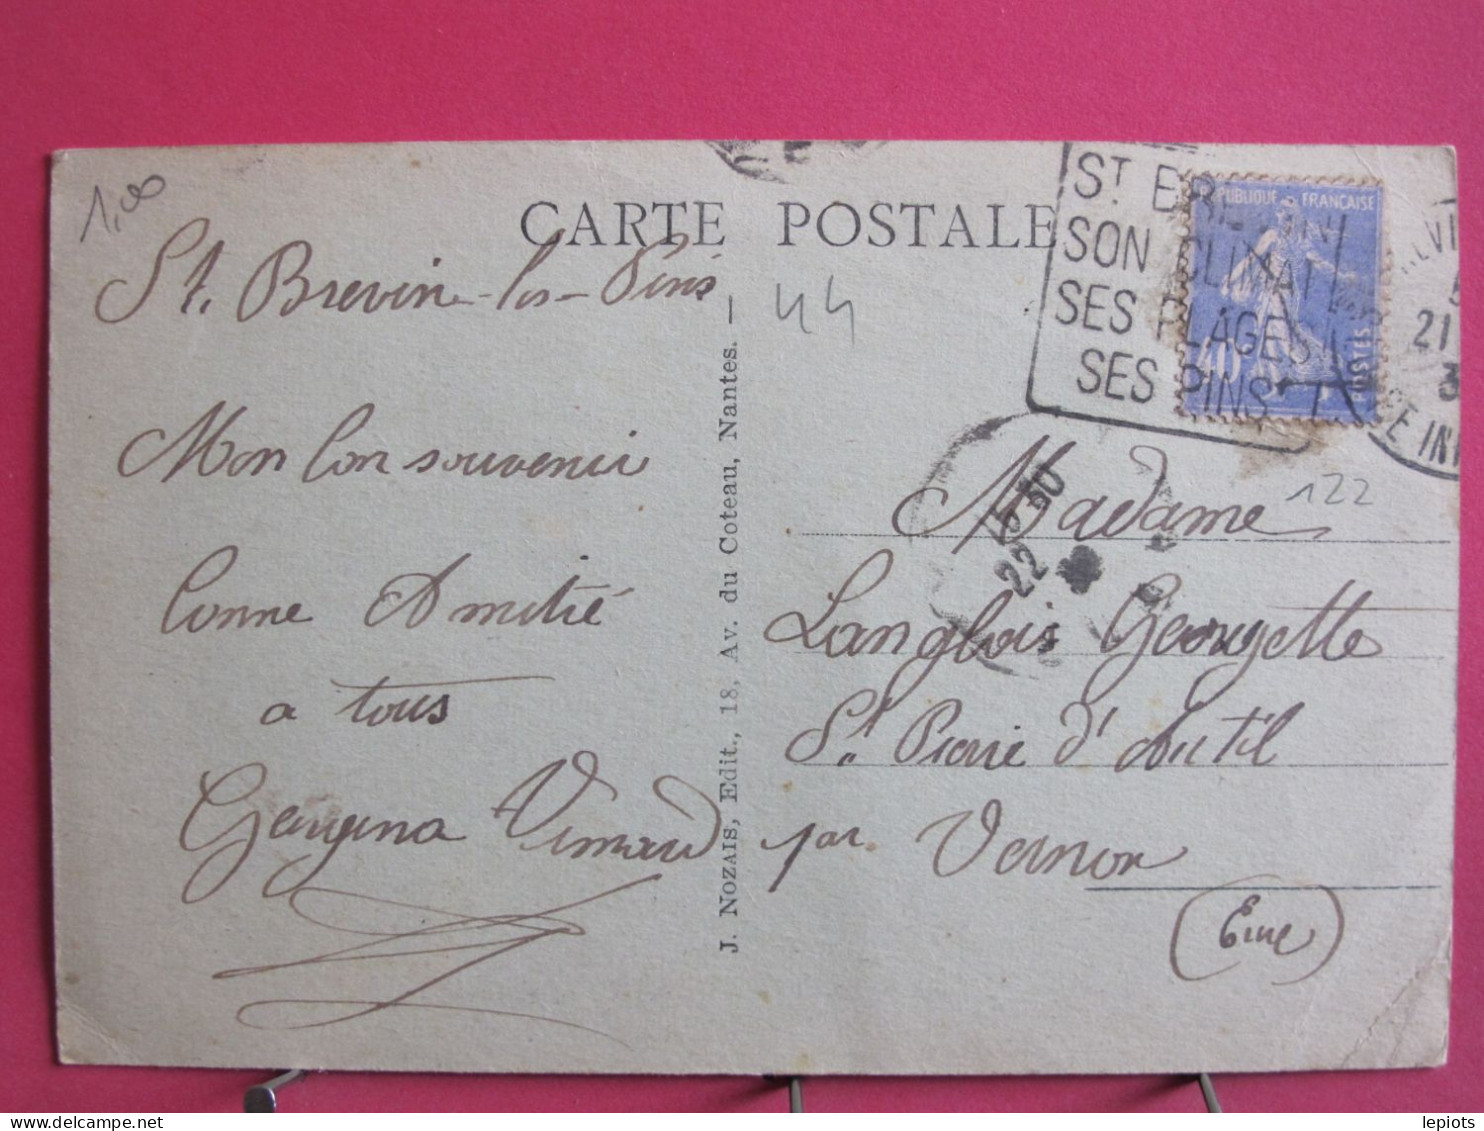 1,00
CARTE POSTALE
St. Brevin-les-Pins
44
Mon bon souvenir
bonne Amitié
a tous
Georgina
J. NOZAIS, Edit., 18, Av. du Coteau, Nantes. —
ST BREVIN
SON CLIMAT
SES PLAGES
SES PINS
RÉPUBLIQUE FRANÇAISE
40
POSTES
21
15 30
22
122
Madame
Langlois Georgette
St. Pierre d'Autil
par Vernon
(Eure)
lepiots